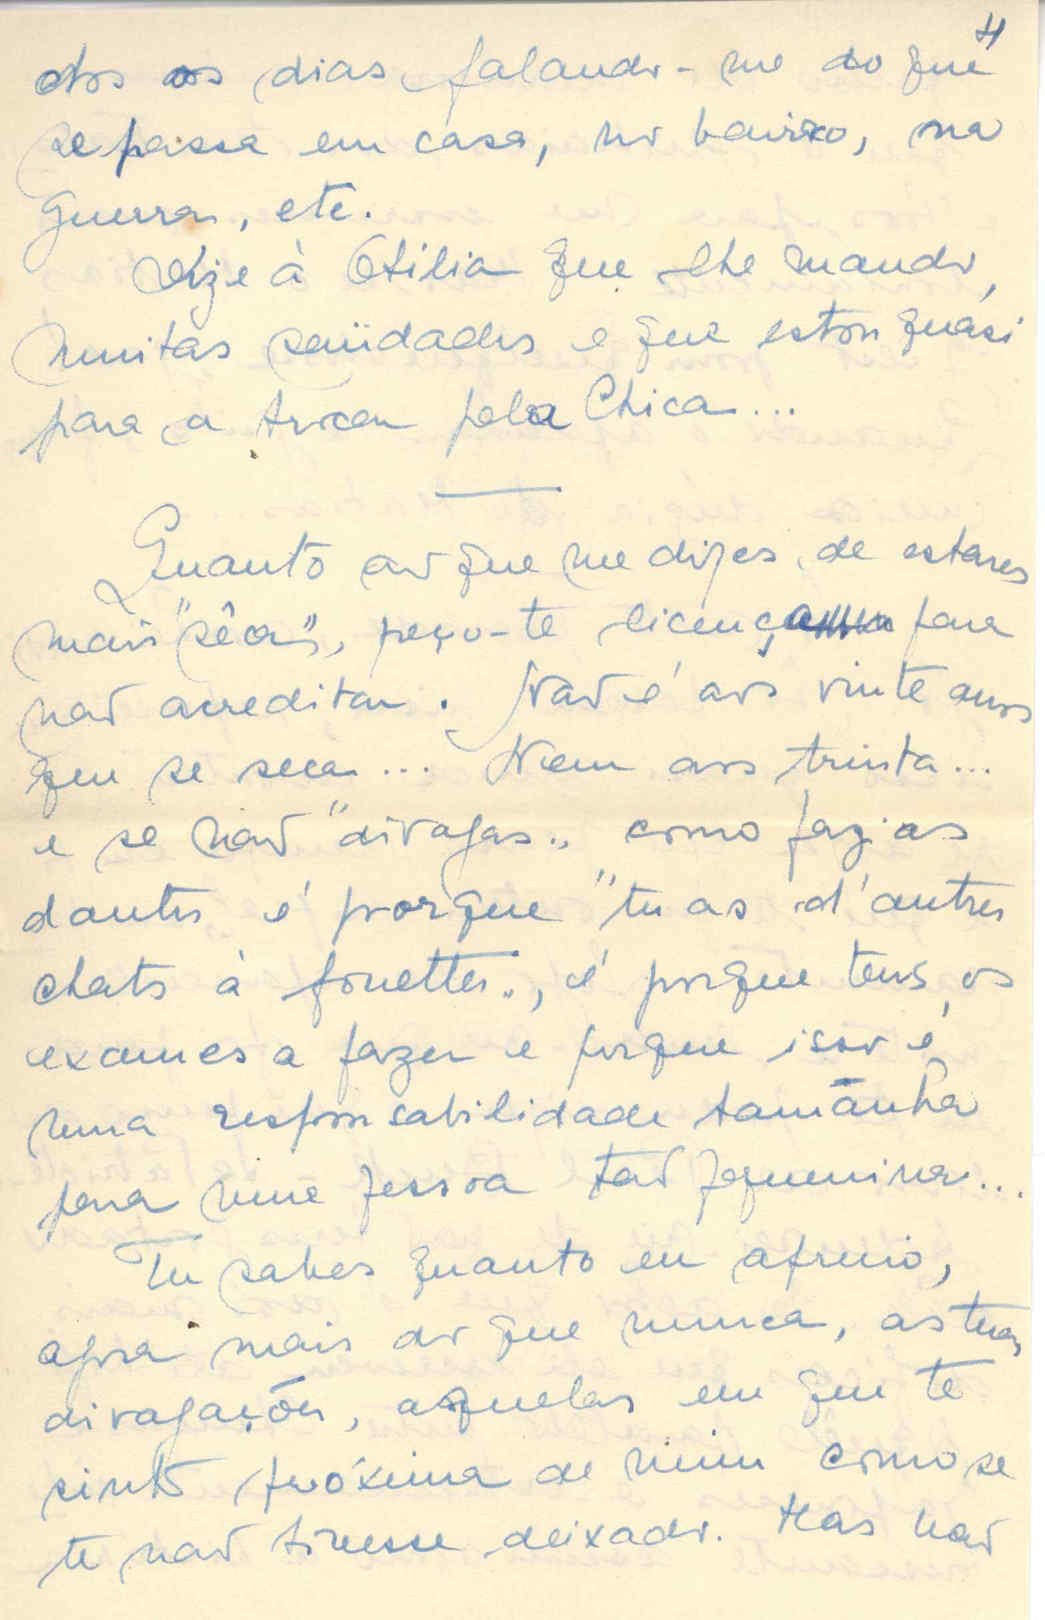 4
dos os dias, falando-me do que
se passa em casa, no bairro, na
guerra, etc.
Dize à Otilia que lhe mando
muitas saüdades e que estou quási
para a trocar pela Chica...
Quanto ao que me dizes, de estares
mais "sêca", peço-te licença para
não acreditar. Não é aos vinte anos
que se seca... Nem aos trinta...
e se não "divagas" como fazias
dantes é porque "tu as d'autres
chats à fouetter", é porque tens os
exames a fazer e porque isso é
uma responsabilidade tamãnha
para uma pessoa tão pequenina...
Tu sabes quanto eu aprecio,
agora mais do que nunca, as tuas
divagações, aquelas em que te
sinto próxima de mim como se
te não tivesse deixado. Mas não